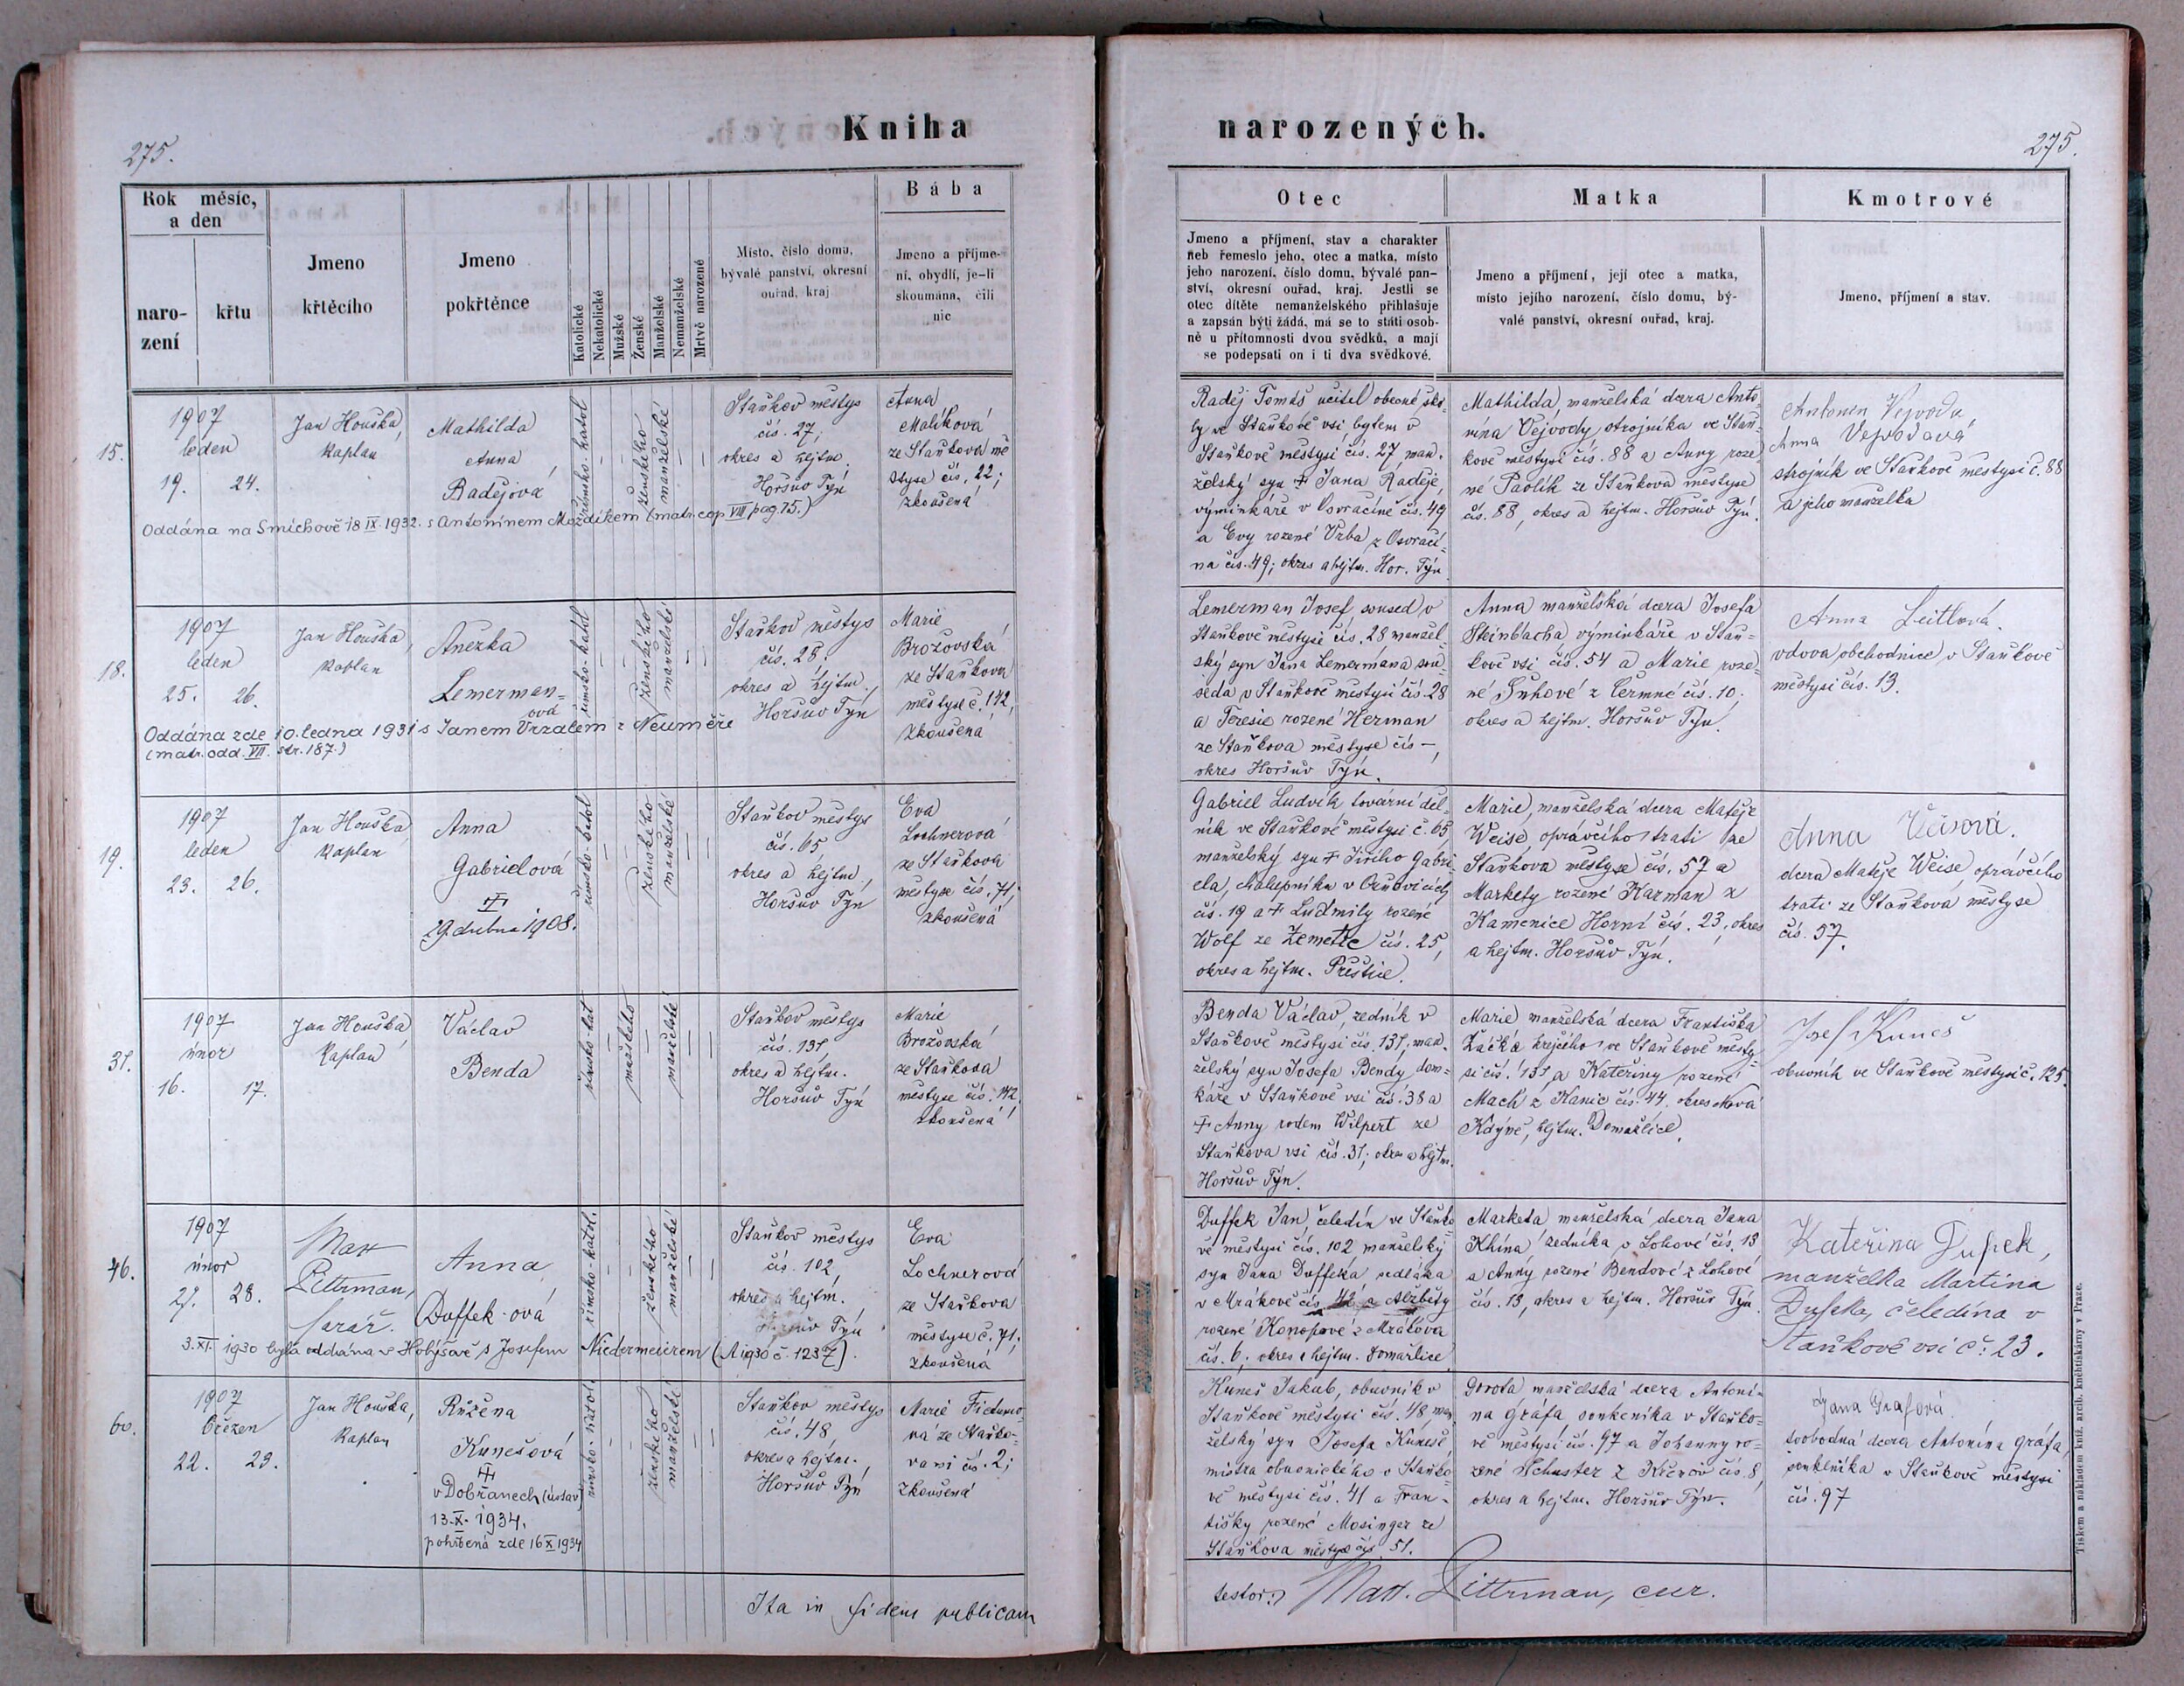 275.
Kniha
Rok měsíc,
a den
naro-
zení
křtu
Jmeno
křtěcího
Jmeno
pokřtěnce
Katolické
Nekatolické
Mužské
Ženské
Manželské
Nemanželské
Mrtvě narozené
Místo, číslo domu,
bývalé panství, okresní
ouřad, kraj
Bába
Jmeno a příjme-
ní, obydlí, je-li
skoumána, čili
nic
15.
1907
leden
19. 24.
Jan Houška,
kaplan
Mathilda
Anna
Radějová
římsko-katol
ženského
manželské
Staňkov městys
čís. 27;
okres a hejtm.
Horšův Týn
Anna
Malíková
ze Staňkova mě
styse čís. 22;
zkoušená
Oddána na Smíchově 18 IX. 1932. s Antonínem Moždíkem (matr. cop VIII pag. 75.)
18.
1907
leden
25. 26.
Jan Houška,
kaplan
Anežka
Lemerman=
ová
římsko-katol
ženského
manželské
Staňkov městys
čís. 28.
okres a hejtm.,
Horšův Týn
Marie
Brožovská
ze Staňkova
městyse č. 142,
zkoušená
Oddána zde 10. ledna 1931 s Janem Vrzalem z Neuměře
(matr. odd. VII. str. 187.)
19.
1907
leden
23. 26.
Jan Houška,
kaplan
Anna
Gabrielová
29. dubna 1908.
římsko-katol
ženského
manželské
Staňkov městys
čís. 65
okres a hejtm.,
Horšův Týn
Eva
Lochnerová
ze Staňkova
městyse čís. 71;
zkoušená
31.
1907
únor
16. 17.
Jan Houška,
kaplan
Václav
Benda
římsko-kat
mužského
manželské
Staňkov městys
čís. 131,
okres a hejtm.
Horšův Týn
Marie
Brožovská
ze Staňkova
městyse čís. 142.
zkoušená
46.
1907
únor
27. 28.
Matt
Pittrman,
farář.
Anna
Duffek-ová
římsko-katol.
ženského
manželské
Staňkov městys
čís. 102,
okres a hejtm.
Horšův Týn
Eva
Lochnerová
ze Staňkova
městyse č. 71;
zkoušená
3. XI. 1930 byla oddána v Holýšově s Josefem Niedermeierem (A 1930 č. 1237).
60.
1907
březen
22. 23.
Jan Houška,
kaplan
Růžena
Kunešová
v Dobřanech (ústav)
13. X. 1934.
pohřbená zde 16 X 1934
římsko-katol
ženského
manželské
Staňkov městys
čís. 48
okres a hejtm.,
Horšův Týn
Marie
ze Staňko-
va vsi čís. 2;
zkoušená
Ita in fidem publicam
narozených.
275.
Otec
Matka
Kmotrové
Jmeno a příjmení, stav a charakter
neb řemeslo jeho, otec a matka, místo
jeho narození, číslo domu, bývalé pan-
ství, okresní ouřad, kraj. Jestli se
otec dítěte nemanželského přihlašuje
a zapsán býti žádá, má se to státi osob-
ně u přítomnosti dvou svědků, a mají
se podepsati on i ti dva svědkové.
Jmeno a příjmení, její otec a matka,
místo jejího narození, číslo domu, bý-
valé panství, okresní ouřad, kraj.
Jmeno, příjmení a stav.
Raděj Tomáš učitel obecné ško-
ly ve Staňkově vsi bytem v
Staňkově městysi čís. 27, man-
želský syn † Jana Raděje,
výminkáře v Osvračíně čís. 49
a Evy rozené Vrba z Osvračí=
na čís. 49; okres a hejtm. Hor. Týn
Mathilda, manželská dcera Anto-
nína Vejvody, strojníka ve Staň-
kově městysi čís. 88 a Anny roze
né Pavlík ze Staňkova městyse
čís. 88, okres a hejtm. Horšův Týn.
Antonín Vejvoda,
Anna Vejvodová
strojník ve Staňkově městysi č. 88
a jeho manželka
Lemerman Josef, soused v
Staňkově městysi čís. 28 manžel-
ský syn Jana Lemermana sou-
seda v Staňkově městysi čís. 28
a Teresie rozené Herman
ze Staňkova městyse čís —,
okres Horšův Týn.
Anna manželská dcera Josefa
Steinbacha výminkáře v Staň=
kově vsi čís. 54 a Marie roze-
né Suhové z Čermné čís. 10;
okres a hejtm. Horšův Týn.
Anna Leitlová.
vdova, obchodnice v Staňkově
městysi čís. 13.
Gabriel Ludvík tovární děl-
ník ve Staňkově městysi č. 65
manželský syn † Jiřího Gabri-
ela, chalupníka v
čís. 19 a † Ludmily rozené
Wolf ze Žemetic čís. 25,
okres a hejtm. Přeštice.
Marie, manželská dcera Matěje
Weise, oprávčího trati ze
Staňkova městyse čís. 57 a
Markety rozené Karman z
Kamenice Horní čís. 23, okres
a hejtm. Horšův Týn.
Anna Veisová.
dcera Matěje Weise, oprávčího
trati ze Staňkova městyse
čís. 57.
Benda Václav, zedník v
Staňkově městysi čís. 131, man-
želský syn Josefa Bendy dom=
káře v Staňkově vsi čís. 38 a
† Anny rodem Wilpert ze
Staňkova vsi čís. 31; okres a hejtm.
Horšův Týn.
Marie manželská dcera Františka
Žáčka krejčího ve Staňkově městy-
si čís. 131 a Kateřiny rozené
Mach z Kanic čís. 44. okres Nová
Kdýně, hejtm. Domažlice.
Josef Kuneš
obuvník ve Staňkově městysi č. 125.
Duffek Jan, čeledín ve Staňko
vě městysi čís. 102 manželský
syn Jana Duffeka, sedláka
v Mrákově čís. 42 a Alžběty
rozené Konopové z Mrákova
čís. 6; okres a hejtm. Domažlice
Marketa manželská dcera Jana
Khína, zedníka v Lohově čís. 13
a Anny rozené Bendové z Lohové
čís. 13, okres a hejtm. Horšův Týn.
Kateřina Dufek,
manželka Martina
Dufeka, čeledína v
Staňkově vsi č. 23.
Kuneš Jakub, obuvník v
Staňkově městysi čís. 48 man
želský syn Josefa Kuneše,
mistra obuvnického v Staňko
vě městysi čís. 41 a Fran-
tišky rozené Mosinger ze
Staňkova městyse čís. 51.
Dorota manželská dcera Antoní-
na Gráfa, soukeníka v Staňko-
vě městysi čís. 97 a Johanny ro-
zené Schuster z čís. 8,
okres a hejtm. Horšův Týn.
Jana Grafová.
svobodná dcera Antonína Gráfa,
soukeníka v Staňkově městysi
čís. 97
testor: Matt. Pittrman, cur.
Tiskem a nákladem kníž. arcib. knihtiskárny v Praze.